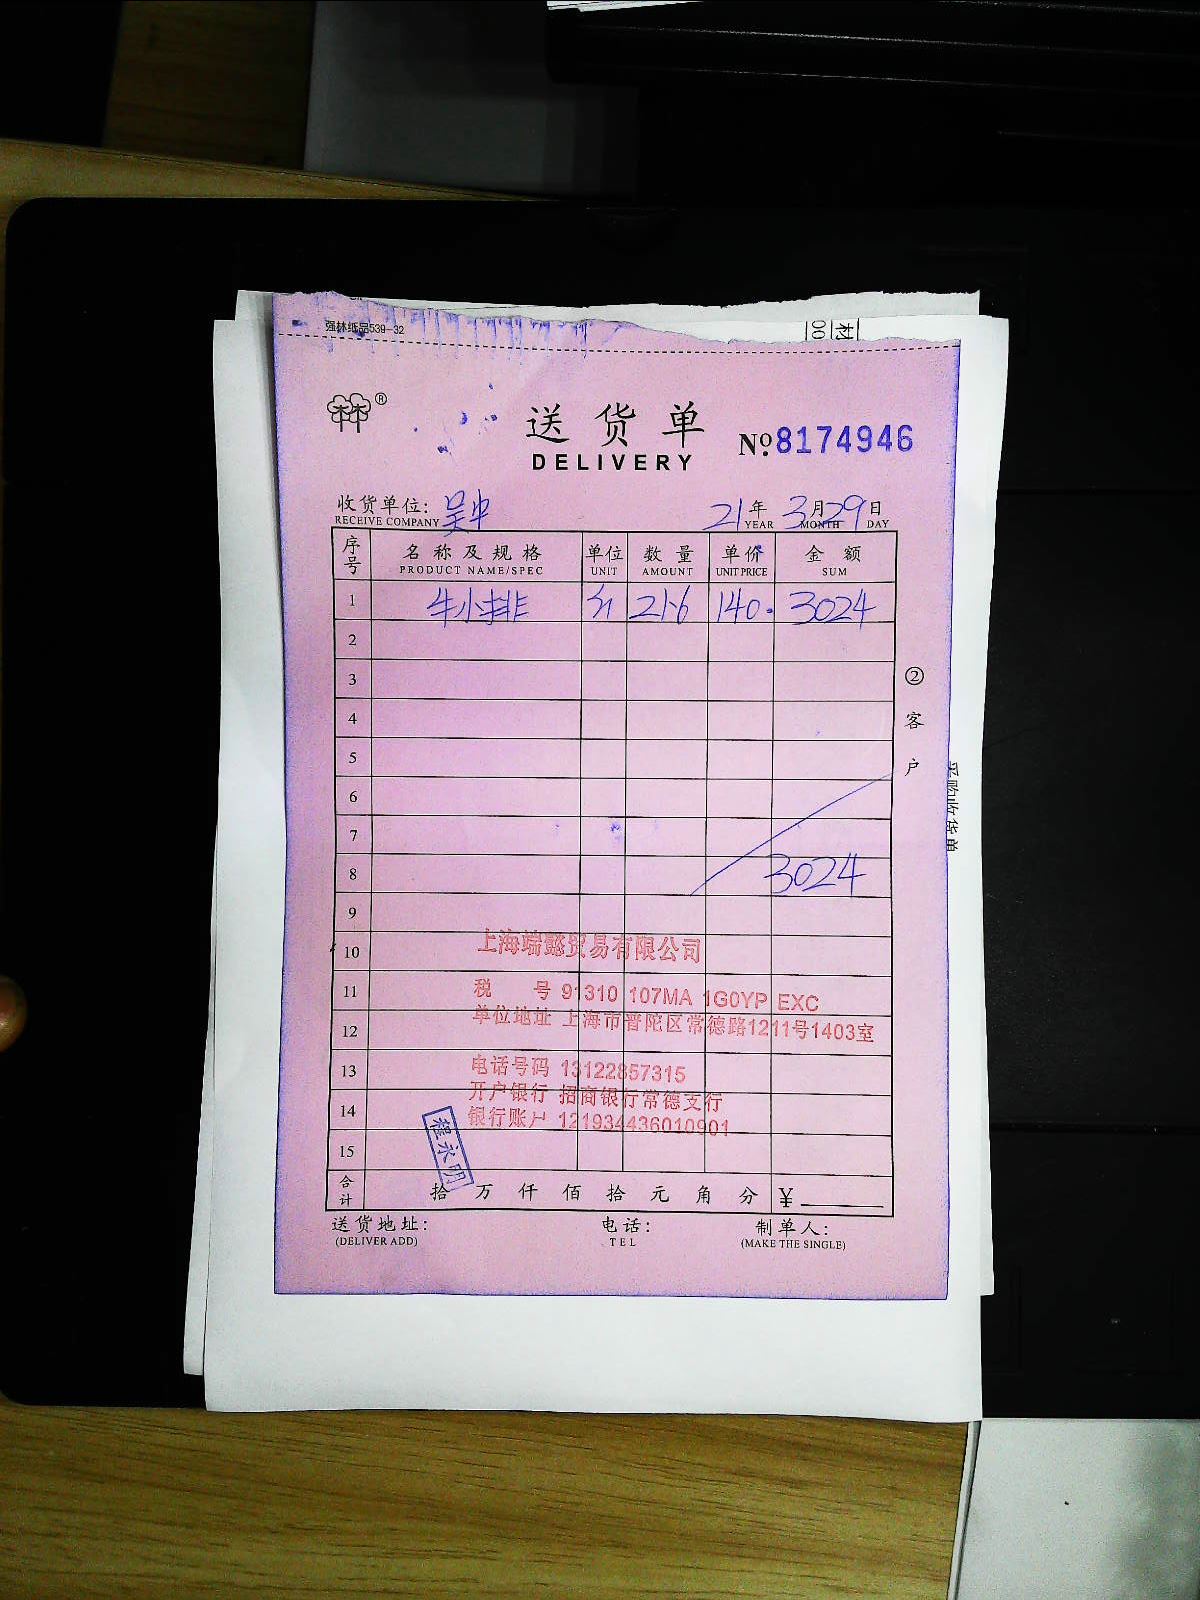 强林纸品539-32
林林®
送货单
DELIVERY
№8174946
收货单位: 吴中
RECEIVE COMPANY
21年 3月29日
YEAR MONTH DAY
序号 名称及规格 单位 数量 单价 金额
PRODUCT NAME/SPEC UNIT AMOUNT UNIT PRICE SUM
1 牛小排 21.6 140. 3024
2
3
4
5
6
7
8 3024
9
10
11
12
13
14
15
②客户
上海端懿贸易有限公司
税 号 91310 107MA 1G0YP EXC
单位地址 上海市普陀区常德路1211号1403室
电话号码 13122857315
开户银行 招商银行常德支行
银行账户 121934436010901
程永明
合计 拾 万 仟 佰 拾 元 角 分 ¥
送货地址: 电话: 制单人:
(DELIVER ADD) TEL (MAKE THE SINGLE)
采购收货单
材
00